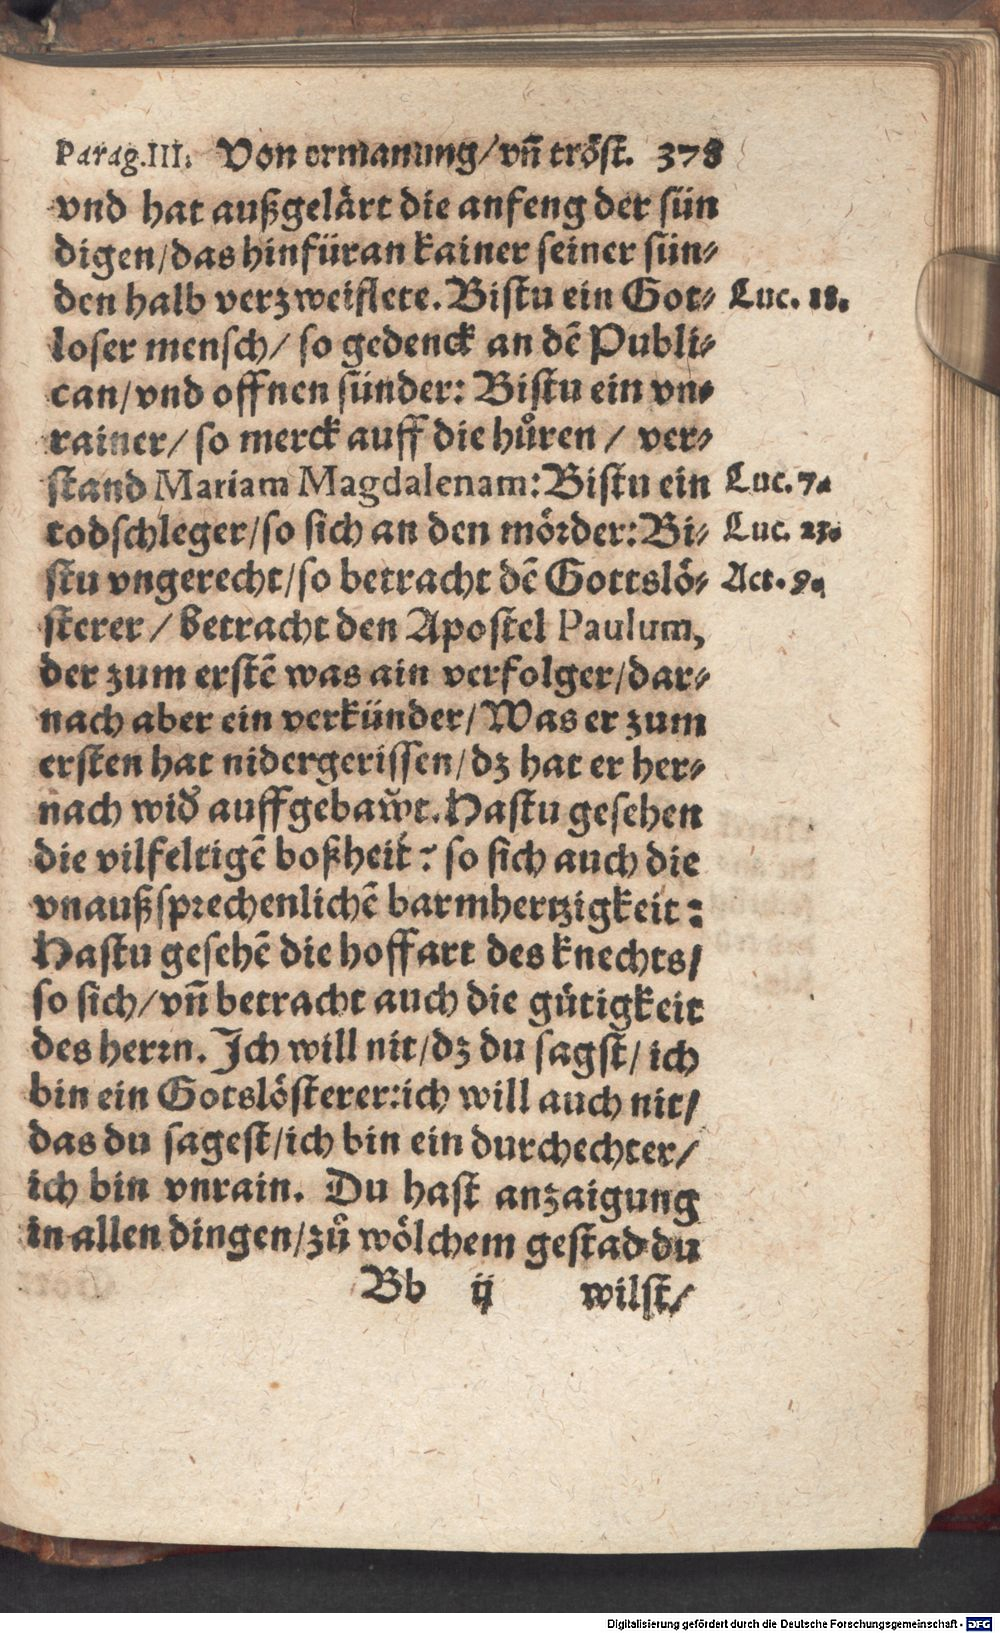 Parag.III. Von ermanung/vñ tröst. 378
vnd hat außgelärt die anfeng der sün
digen/das hinfüran kainer seiner sün⸗
den halb verzweiflete. Bistu ein Got⸗ Luc. 18.
loser mensch/ so gedenck an dē Publi⸗
can/vnd offnen sünder: Bistu ein vn⸗
rainer/ so merck auff die hůren / ver⸗
stand Mariam Magdalenam: Bistu ein Luc. 7.
todschleger/so sich an den mörder: Bi⸗ Luc. 23.
stu vngerecht/so betracht dē Gottslö⸗ Act. 9.
sterer/ betracht den Apostel Paulum,
der zum erstē was ain verfolger/dar⸗
nach aber ein verkünder/Was er zum
ersten hat nidergerissen/dz hat er her⸗
nach wid auffgebawt. Hastu gesehen
die vilfeltigē boßheit: so sich auch die
vnaußsprechenlichē barmhertzigkeit:
Hastu gesehē die hoffart des knechts/
so sich/vñ betracht auch die gütigkeit
des herrn. Ich will nit/dz du sagst/ ich
bin ein Gotslösterer:ich will auch nit/
das du sagest/ich bin ein durchechter/
ich bin vnrain. Du hast anzaigung
in allen dingen/zů wölchem gestad du
Bb ij wilst/
Digitalisierung gefördert durch die Deutsche Forschungsgemeinschaft - DFG